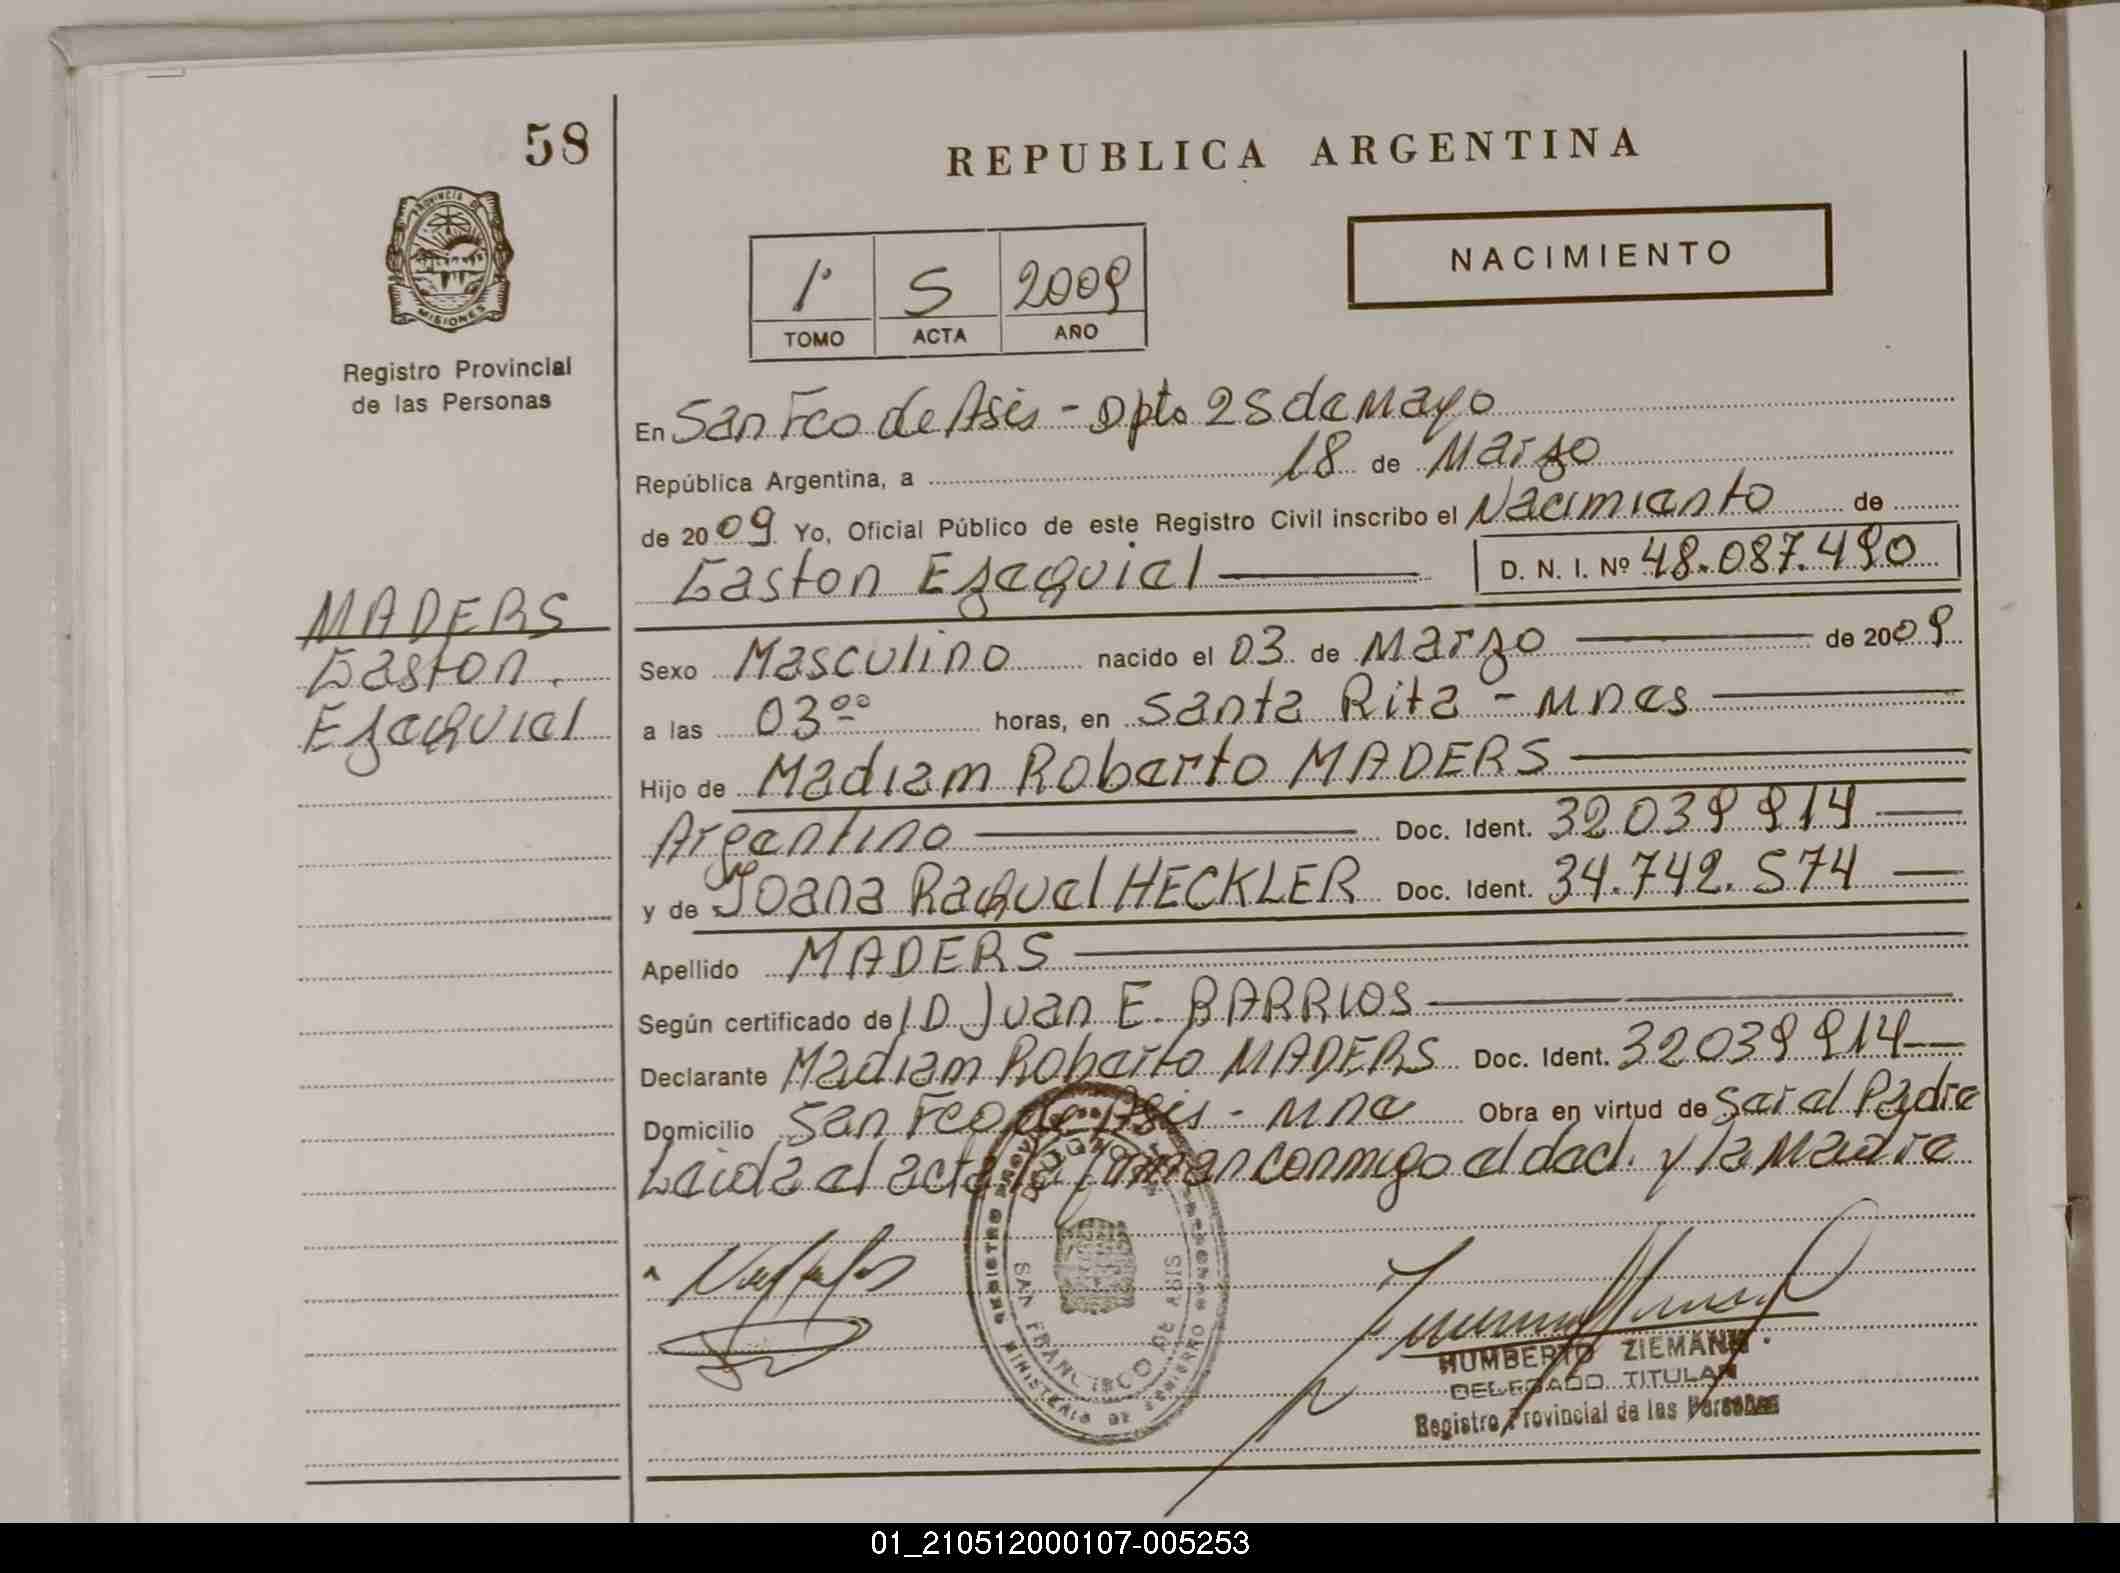 58
REPUBLICA ARGENTINA
PROVINCIA DE
MISIONES
NACIMIENTO
1º S 2009
TOMO ACTA AÑO
Registro Provincial
de las Personas
En San Fco de Asis - Dpto 25 de Mayo
República Argentina, a 18 de Marzo
de 2009 Yo, Oficial Público de este Registro Civil inscribo el Nacimiento de
Gaston Ezequiel D. N. I. Nº 48.087.490
MADERS
Gaston
Ezequiel
Sexo Masculino nacido el 03 de Marzo de 2009
a las 03ºº horas, en Santa Rita - Mnes
Hijo de Madiam Roberto MADERS
Argentino Doc. Ident. 32039914
y de Joana Raquel HECKLER Doc. Ident. 34.742.574
Apellido MADERS
Según certificado de I.D. Juan E. BARRIOS
Declarante Madiam Roberto MADERS Doc. Ident. 32039914
Domicilio San Fco de Asis - Mne Obra en virtud de Ser el Padre
Leida el acta la firman conmigo el decl. y la Madre
SAN FRANCISCO DE ASIS
MINISTERIO DE GOBIERNO
HUMBERTO ZIEMANN
DELEGADO TITULAR
Registro Provincial de las Personas
01_210512000107-005253